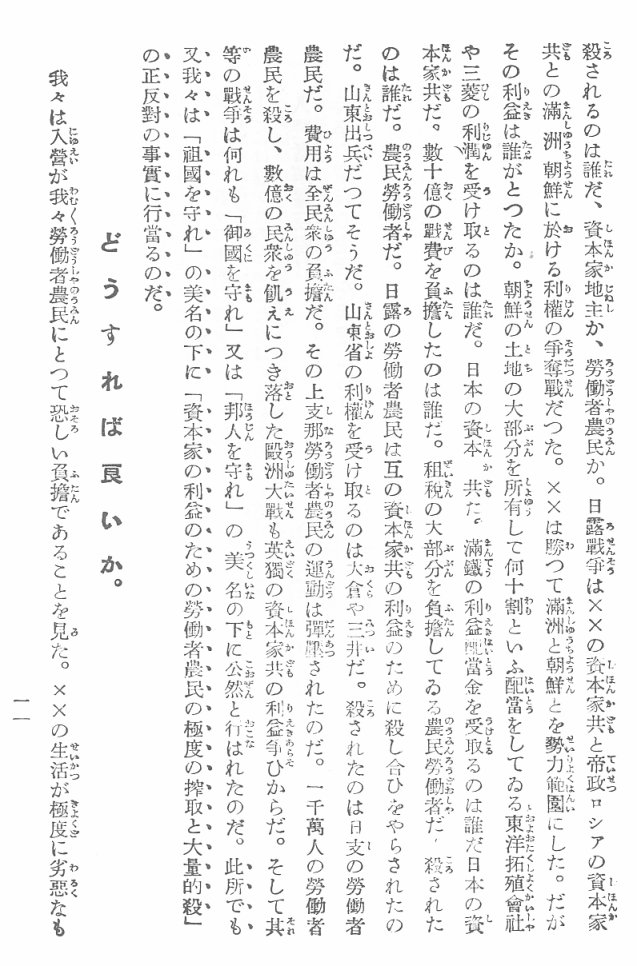 殺されるのは誰だ、資本家地主か、勞働者農民か。日露戰爭は××の資本家共と帝政ロシアの資本家
共との滿洲朝鮮に於ける利權の爭奪戰だつた。××は勝つて滿洲と朝鮮とを勢力範圍にした。だが
その利益は誰がとつたか。朝鮮の土地の大部分を所有して何十割といふ配當をしてゐる東洋拓殖會社
や三菱の利潤を受け取るのは誰だ。日本の資本家共だ。滿鐵の利益配當金を受取るのは誰だ日本の資
本家共だ。數十億の戰費を負擔したのは誰だ。租稅の大部分を負擔してゐる農民勞働者だ、殺された
のは誰だ。農民勞働者だ。日露の勞働者農民は互の資本家共の利益のために殺し合ひをやらされたの
だ。山東出兵だつてそうだ。山東省の利權を受け取るのは大倉や三井だ。殺されたのは日支の勞働者
農民だ。費用は全民衆の負擔だ。その上支那勞働者農民の運動は彈壓されたのだ。一千萬人の勞働者
農民を殺し、數億の民衆を飢えにつき落した毆洲大戰も英獨の資本家共の利益爭ひからだ。そして其
等の戰爭は何れも「御國を守れ」又は「邦人を守れ」の美名の下に公然と行はれたのだ。此所でも
又我々は「祖國を守れ」の美名の下に「資本家の利益のための勞働者農民の極度の搾取と大量的殺」
の正反對の事實に行當るのだ。
どうすれば良いか。
我々は入營が我々勞働者農民にとつて恐しい負擔であることを見た。××の生活が極度に劣惡なも
一一